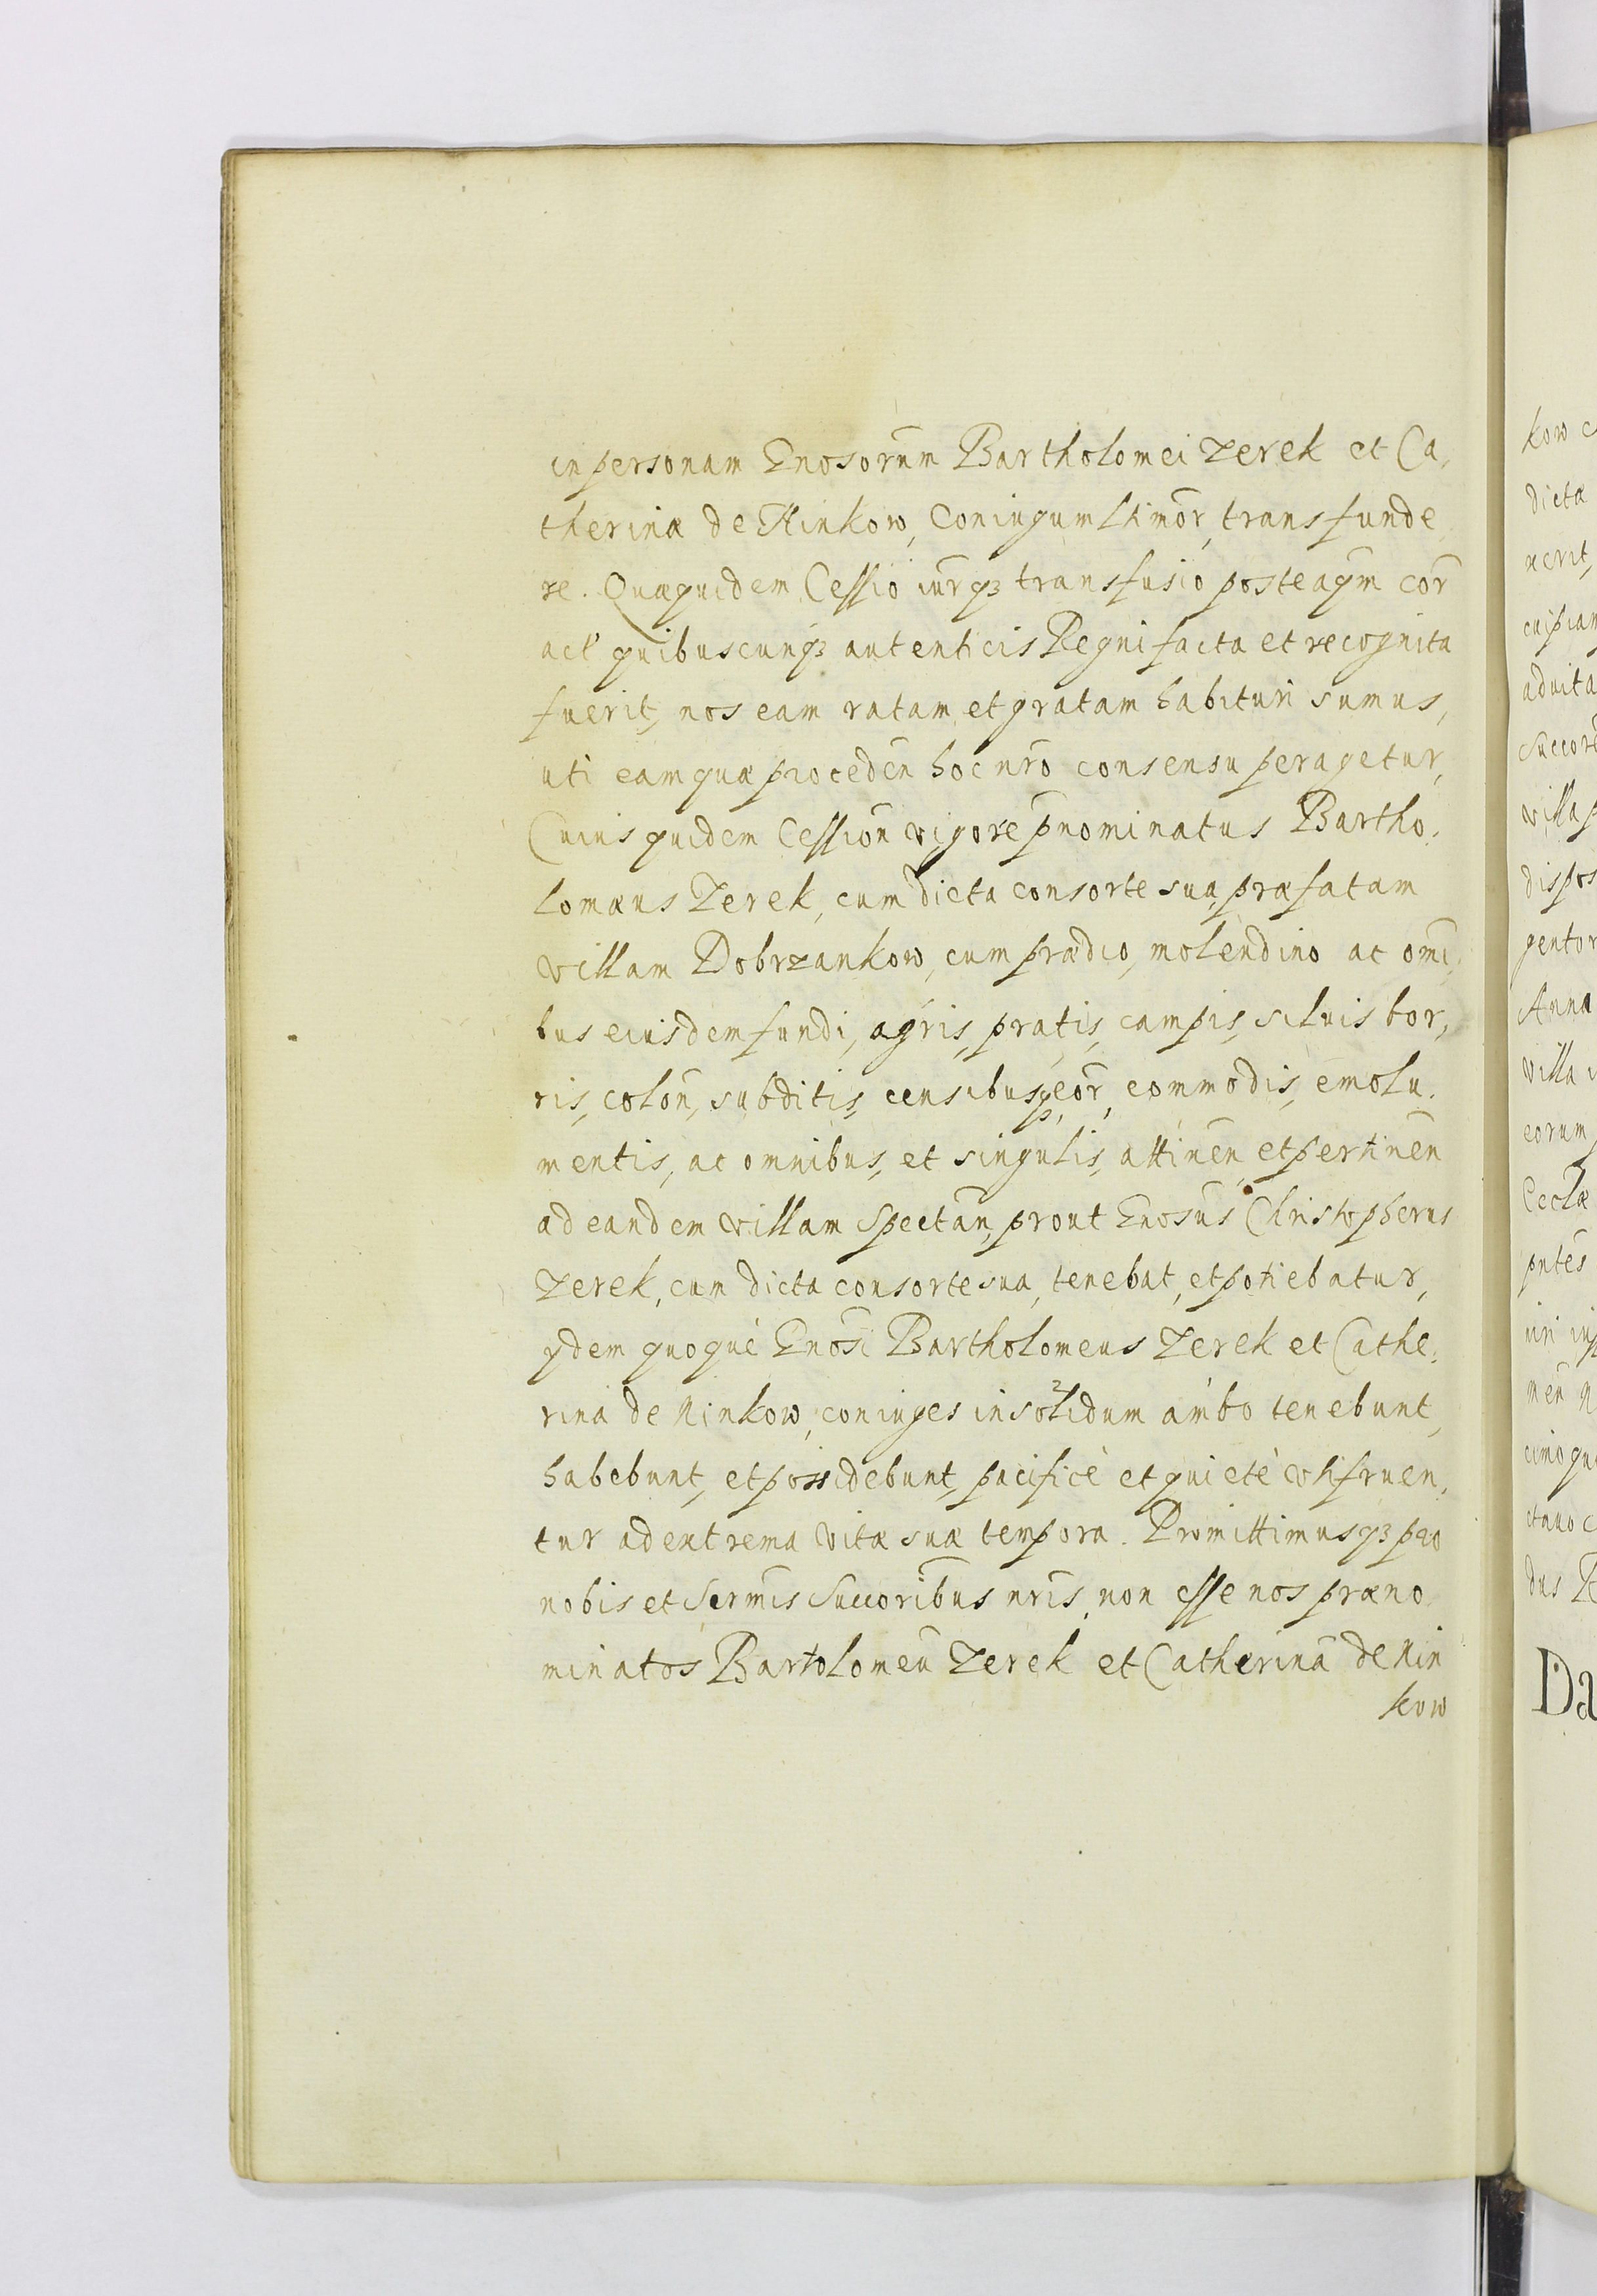 in personam Gnosorūm Bartholomei Zerek et Ca,
therinæ de Ninkow, Coniugum lĩmõr, transfunde
re. Quæquidem Cessio iur̄qꝫ transfusio posteaq̃m cor̄
act' quibuscunqꝫ autenticis Regni facta et recognita
fuerit, nos eam ratam, et gratam habituri sumus,
uti eam quæ proceden̄ hoc nr̄o consensu peragetur,
Cuius quidem Cession̄ vigore p̄nominatus Bartho,
lomæus Zerek, cum dicta consorte sua, præfatam
villam Dobrzankow, cum prædio, molendino ac omī,
bus eiusdem fundi, agris, pratis, campis, siluis bor,
ris, colon̄, subditis, censibusq, eor̄, commodis, emolu.
mentis, ac omnibus, et singulis, attinen̄, et pertinen̄
ad eandem villam Spectan̄, prout Gnosūs Christopherus
Zerek, cum dicta consorte sua, tenebat, et potiebatur,
ydem quoquè Gnosī Bartholomeus Zerek et Cathe,
rina de Ninkow, coniuges insolidum ambo tenebunt,
habebunt, et possidebunt, pacificè et quietè vtifruen,
tur ad extrema vitæ suæ tempora. Promittimusqꝫ pro
nobis et Serm̄is Succoribus nr̄is, non esse nos præno
minatos Bartolomeū Zerek et Catherinā de Nin
kow
kow
dictæ
uerit,
cuipiam
Villa
eorum
Da